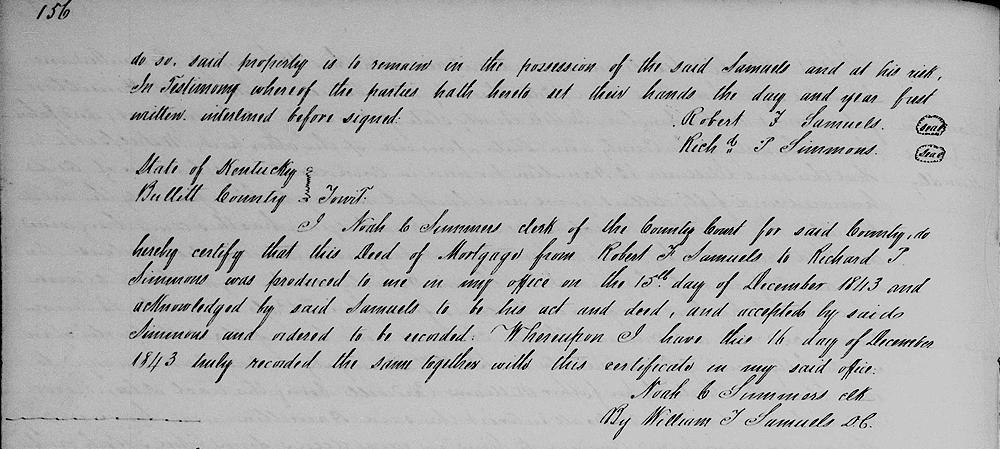 156
do so. said property is to remain in the possession of the said Samuels and at his risk.
In Testimony whereof the parties hath hereto set their hands the day and year first
written. interlined before signed:
Robert F Samuels. Seal
Richd P Simmons. Seal
State of Kentucky
Bullett County Towit:
I Noah C Summers clerk of the County Court for said County, do
hereby certify that this Deed of Mortgage from Robert F Samuels to Richard P
Simmons was produced to me in my office on the 15th day of December 1843 and
acknowledged by said Samuels to be his act and deed, and accepted by said
Simmons and ordered to be recorded: Whereupon I have this 16 day of December
1843 truly recorded the same together with this certificate in my said office:
Noah C Summers clk
By William T Samuels DC.